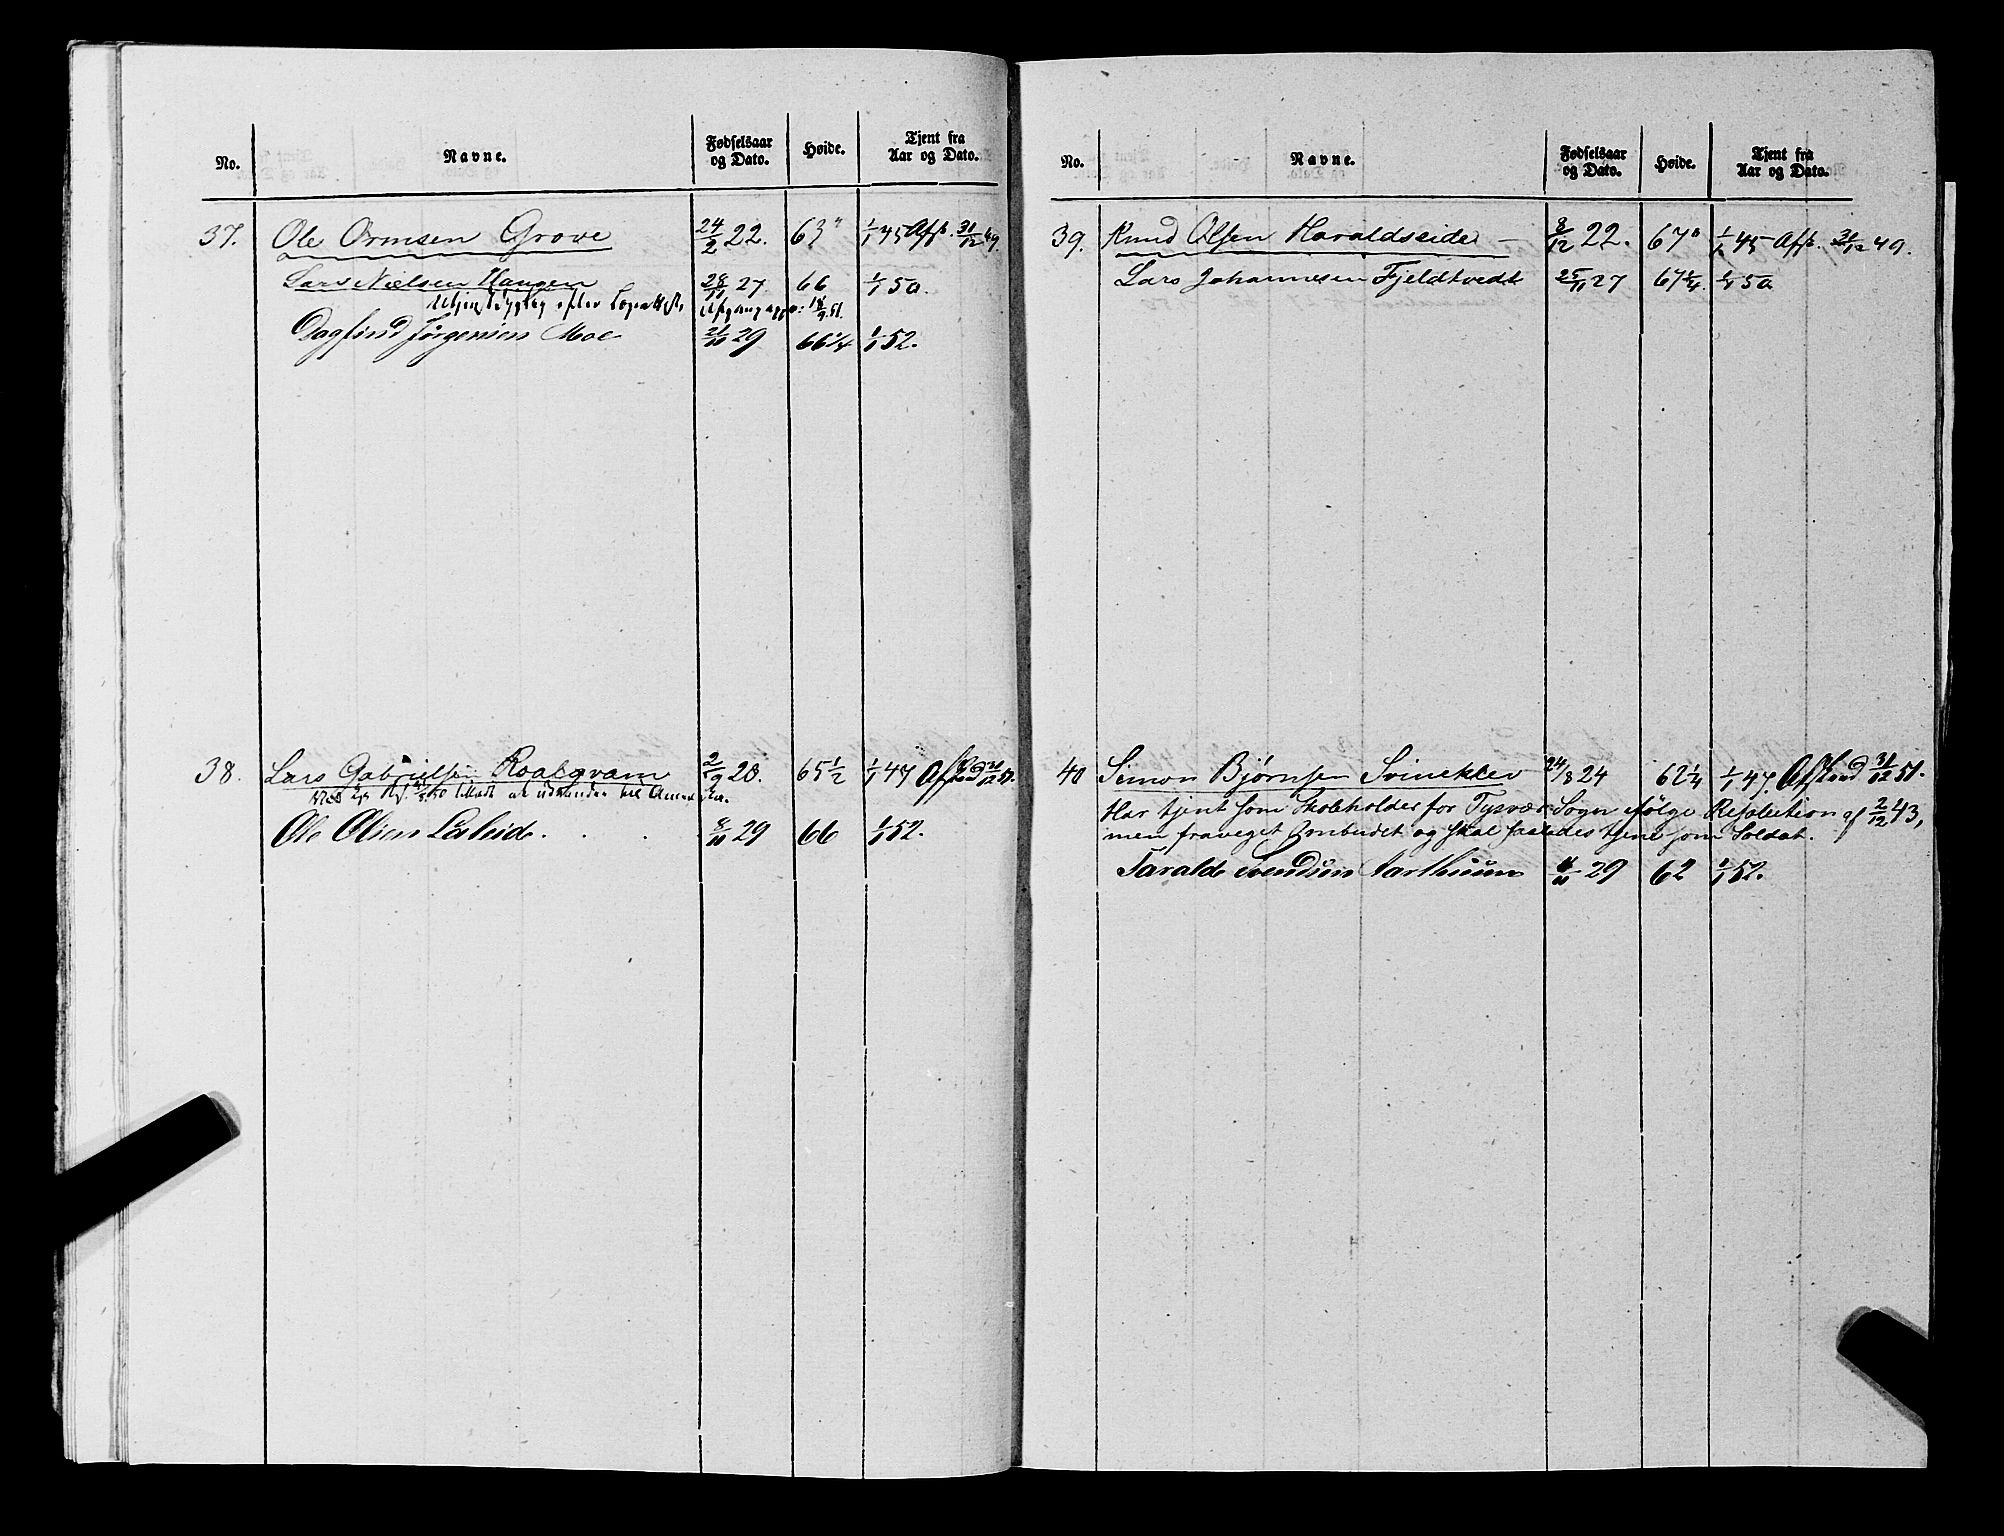 No. Navne. Fødselsaar og Dato. Høide. Tjent fra Aar og Dato.
37. Ole Ormsen Grove 24/2 22. 63" 1/1 45 Afsk. 31/12 49.
Lars Nielsen Haugen 28/11 27 66 1/1 50.
efter 18/9 51.
Dagfind Jørgensen Moe 21/10 29 66 1/4 1/1 52.
38. Lars Gabrielsen Roalqvam 2/9 28. 65 1/2 1/1 47 31/12 51.
Ved tilladt at udvandre til Amerika.
Ole Olsen 8/10 29 66 1/1 52.
No. Navne. Fødselsaar og Dato. Høide. Tjent fra Aar og Dato.
39. Knud Olsen Haraldseide – 8/12 22. 67" 1/1 45 Afsk. 31/12 49.
Lars Johannesen Fjeldtvedt 25/11 27 67 1/4 1/1 50
40 Simon Bjørnsen Svineklev 24/8 24 62 1/4 1/1 47. Afskeed 31/12 51.
Har tjent som Skoleholder for Tysvær Sogn ifølge Resolution af 2/12 43,
men fraveget Ombudet og skal saaledes tjene som Soldat.
Taralde Svendsen Aarthuun 4/11 29 62 1/1 52.